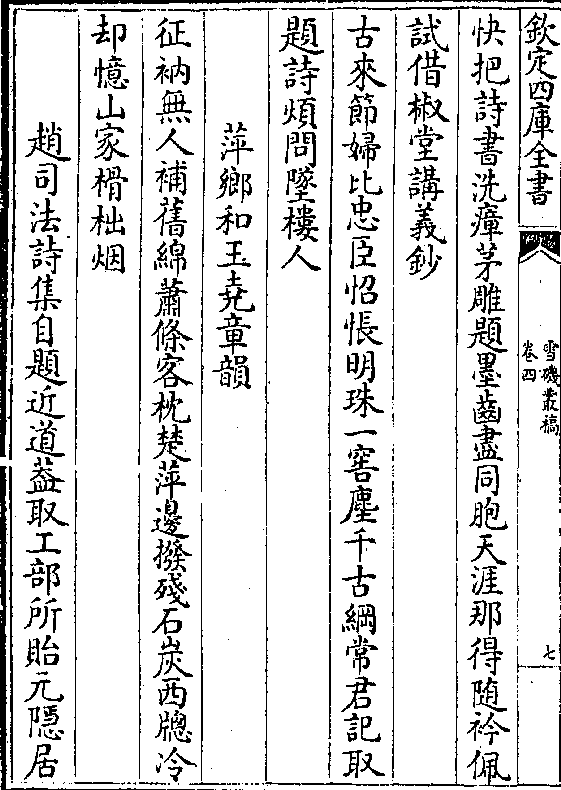 欽定四庫全書
雪磯叢稿
卷四
七
快把詩書洗瘴茅雕題墨齒盡同胞天涯那得随衿佩
試借椒堂講義鈔
古來節婦比忠臣怊悵明珠一窖塵千古綱常君記取
題詩煩問墜樓人
萍鄉和玉堯章韻
征衲無人補舊綿蕭條客枕楚萍邊撥殘石炭西牕冷
却憶山家榾柮烟
趙司法詩集自題近道葢取工部所貽元隱居